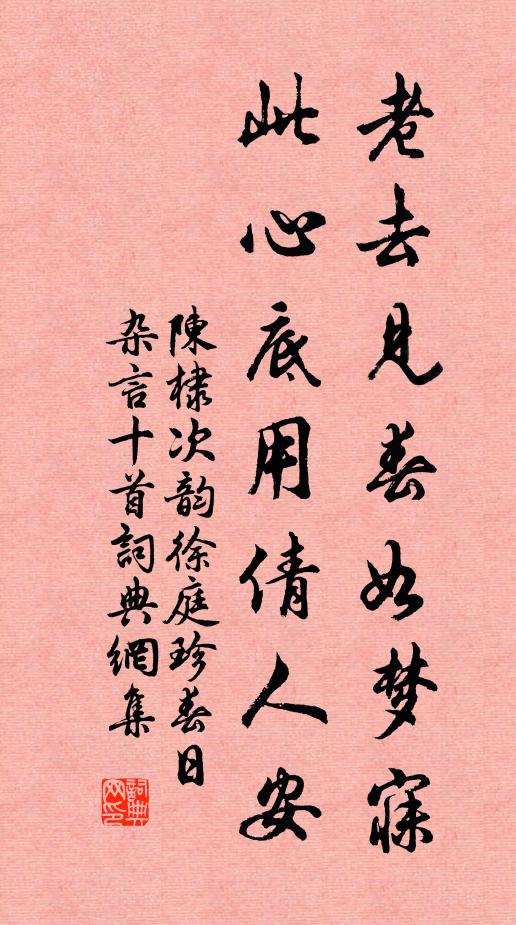 老去見春如梦寐
此心底用倩人安
陳棣次韵徐庭珍春日
杂言十首詞典網集
詞典网印